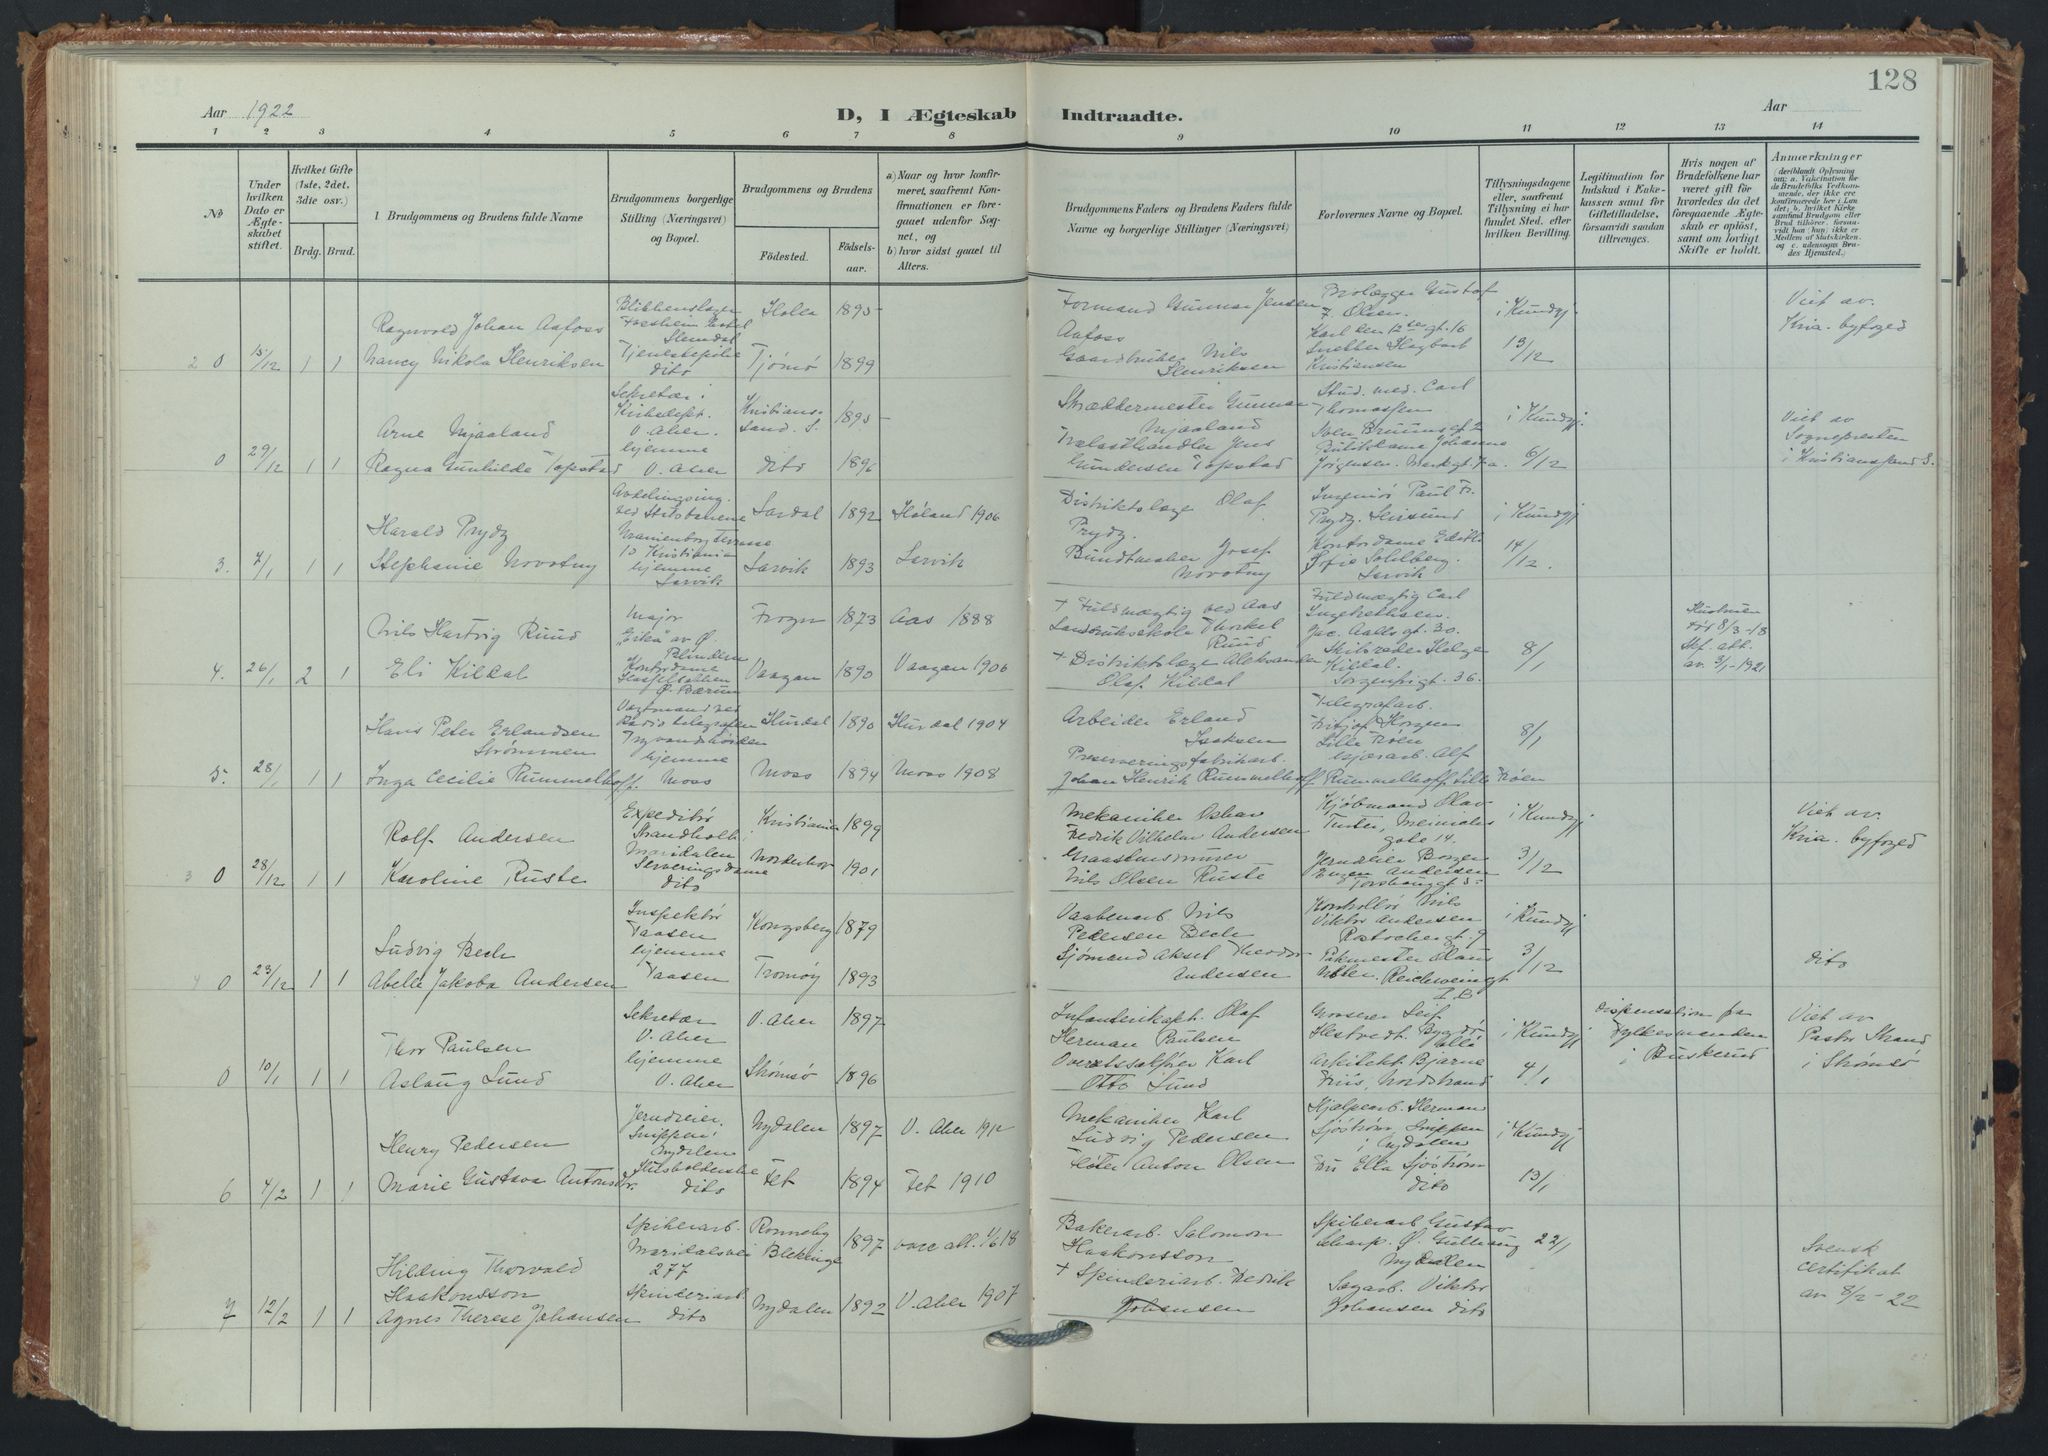 128
Aar 1922
D, I Ægteskab Indtraadte.
Aar
1 2 3 4 5 6 7 8 9 10 11 12 13 14
No
Under hvilken Dato er Ægteskabet stiftet.
Hvilket Gifte (1ste, 2det, 3die osv.)
Brdg. Brud.
1 Brudgommens og Brudens fulde Navne
Brudgommens borgerlige Stilling (Næringsvei) og Bopæl.
Brudgommens og Brudens
Födested.
Födselsaar.
a) Naar og hvor konfirmeret, saafremt Konfirmationen er foregaaet udenfor Sognet, og
b) hvor sidst gaaet til Alters.
Brudgommens Faders og Brudens Faders fulde Navne og borgerlige Stillinger (Næringsvei)
Forlovernes Navne og Bopæl.
Tillysningsdagene eller, saafremt Tillysning ei har fundet Sted, efter hvilken Bevilling.
Legitimation for Indskud i Enkekassen samt for Giftetilladelse, forsaavidt saadan tiltrænges.
Hvis nogen af Brudefolkene har været gift för hvorledes da det foregaaende Ægteskab er oplöst, samt om lovligt Skifte er holdt.
Anmærkninger
Ragnvald Johan Aafoss
Holla 1895
Formand Gunnar Jensen Aafoss
Brolægger Gustaf F. Olsen.
Karl den 12tes gt. 16
i Kundgj
Viet av Kria. byfoged
2 0 15/12 1 1
Nancy Nikola Henriksen
Tjenestepike dito
Tjømø 1899
Gaardbruker Nils Henriksen
Kristiansen
13/12
Arne Mjaaland
Sekretær i Kirkedept. V. Aker.
Kristiansand. S. 1895
Skræddermester Gunnar Mjaaland
Stud. med. Carl Thomassen
Sven Bruunsgt 2
i Kundgj.
Viet av Sognepresten i Kristianssand S.
0 29/12 1 1
Ragna Gunhilde Topstad
hjemme V. Aker
dito 1896
Trælasthandler Jens Gundersen Topstad
Butikdame Johanne Jørgensen.
6/12
Harald Prydz
Avdelingsing. ved Statsbanene
Uranienborg Terrasse 10 Kristiania
Lardal 1892
Høland 1906
Distriktslæge Olaf Prydz.
Ingeniør Paul Fr. Prydz.
i Kundgj
3. 7/1 1 1
Stephanie Novotny
hjemme Larvik
Larvik 1893
Larvik
Bundtmaker Josef Novotny
Kontordame Edith Sofie Sohlberg. Larvik
14/12.
Nils Hartvig Ruud
Major
"Eika" av Ø.
Frogn 1873
Aas 1888
+ Fuldmægtig ved Aas Landbruksskole Thorkel Ruud
Fuldmægtig Carl Ingebrethsen.
Jac. Aalls gt. 30.
Hustruen død 8/3-18
Skf. att. av 3/1-1921
4. 26/1 2 1
Eli Kildal
Kontordame
Ø. Bærum
Vaagan 1890
Vaagan 1906
+ Distriktslæge Aleksander Olaf Kildal
Skibsreder Helge Kildal.
Sorgenfrigt. 36.
8/1
Hans Peter Erlandsen Strømmen
Vagtmand ved Radiotelegrafen Tryvandshøiden
Hurdal 1890
Hurdal 1904
Arbeider Erland Isaksen
Telegrafarb. Fritjof Horgen Lille Frøen
8/1
5. 28/1 1 1
Inga Cecilie Rummelhoff.
hjemme Moss
Moss 1894
Moss 1908
Preserveringsfabrikarb. Johan Henrik Rummelhoff
Alf Rummelhoff Lille Frøen
Rolf Andersen
Expeditør
Maridalen
Kristiania 1899
Mekaniker Oskar Fredrik Vilhelm Andersen
Kjøbmand Olav
gate 14.
i Kundgj
Viet av Kria. byfoged
3 0 28/12 1 1
Karoline Ruste
Serveringsdame dito
Norderhov 1901
Graastensmurer Nils Olsen Ruste
Eugen Andersen
Torshauggt 5
3/12
Ludvig Bech
Inspektør Taasen
Kongsberg 1879
Vaabenarb. Nils Pedersen Bech
Kontrollør Nils Viktor Andersen
Rostockergt. 9
i Kundgj
4 0 23/12 1 1
Abelle Jakoba Andersen
hjemme Taasen
Tromøy 1893
Sjømand Aksel Theodor Andersen
Pakmester Olaus
3/12
dito
Thor Paulsen
Sekretær V. Aker
V. Aker 1897
Infanterikapt. Olaf Herman Paulsen
Grosserer Leif Hestvedt. Bygdø allé
i Kundgj
Dispensation fra Fylkesmanden i Buskerud
Viet av Pastor Strand i Strømsø
0 10/1 1 1
Aslaug Lund
hjemme V. Aker
Strømsø 1896
Overretssakfører Karl Otto Lund
Arkitekt Bjarne Friis, Nordstrand
4/1
Henry Pedersen
Jerndreier, Snippen i Nydalen
Nydalen 1897
V. Aker 1912
Mekaniker Karl Ludvig Pedersen
Hjælpearb. Herman Sjöström, Snippen i Nydalen
i Kundgj
6 4/2 1 1
Marie Gustava Antonsdtr.
Husholderske dito
Fet 1894
Fet 1910
Fløter Anton Olsen
Fru Ella Sjöström dito
13/1
Hilding Thorvald Haakonsson
Spikerarb. Maridalsvei 277
Ronneby Blekinge 1897
Bakerarb. Salomon Haakonsson
Spikerarb Gustav
Nydalen
22/1
Svensk certifikat av 8/2-22
7 12/2 1 1
Agnes Therese Johansen
Spinderiarb dito
Nydalen 1892
V. Aker 1907
+ Spinderiarb. Fredrik Johansen
Sagarb. Viktor Johansen dito